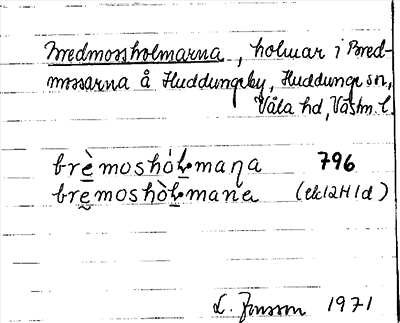 Bredmossholmarna, holmar i Bred-
mossarna å Huddungeby, Huddunge sn,
Våla hd, Västm. l.
brèmoshòḷmaṇa 796
brèmoshòḷmane (ek12H1d)
L. Jonsson 1971